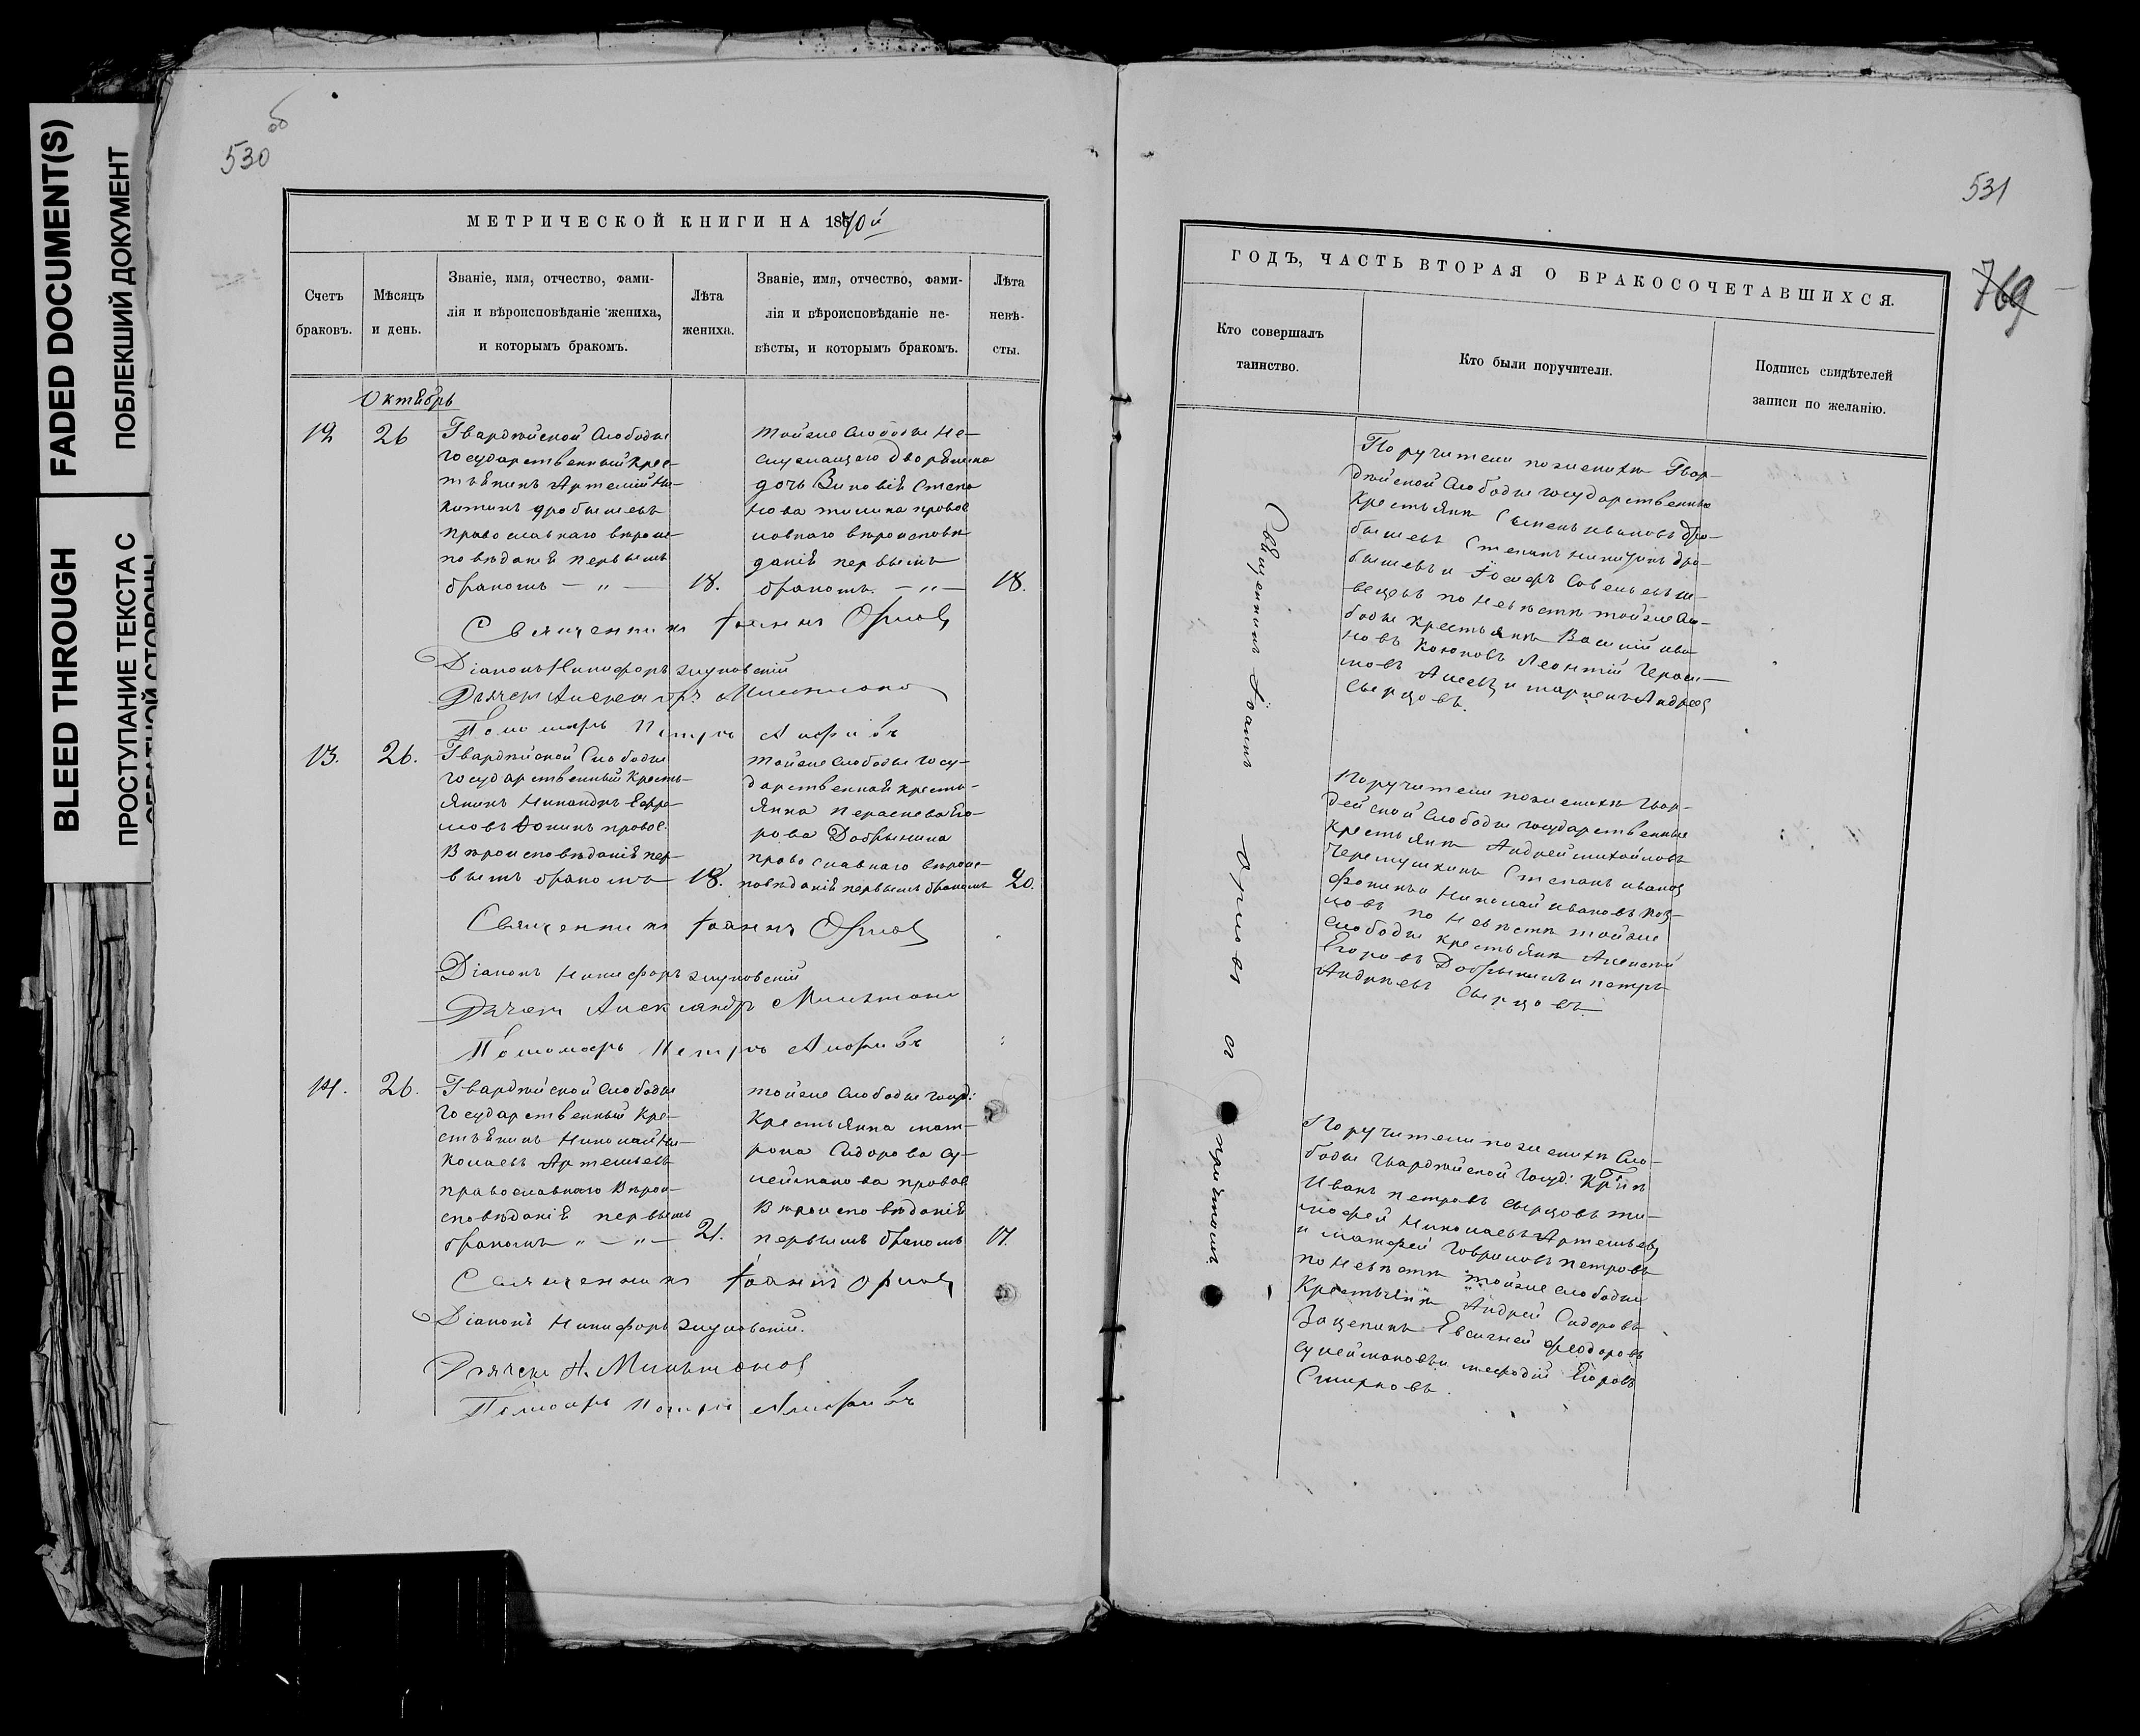 FADED DOCUMENT(S)
ПОБЛЕКШИЙ ДОКУМЕНТ
BLEED THROUGH
ПРОСТУПАНИЕ ТЕКСТА С
ОБРАТНОЙ СТОРОНЫ
530
об
МЕТРИЧЕСКОЙ КНИГИ НА 1870й
Счетъ
браковъ.
Мѣсяцъ
и день.
Званіе, имя, отчество, фами-
лія и вѣроисповѣданіе жениха,
и которымъ бракомъ.
Лѣта
жениха.
Званіе, имя, отчество, фами-
лія и вѣроисповѣданіе не-
вѣсты, и которымъ бракомъ.
Лѣта
невѣ-
сты.
Октябрь
12
26
Гвардѣйской Слободы
государственный крес-
тьянинъ Артемій Ни-
китинъ Дробышевъ
православнаго вѣроис-
повѣданія первымъ
бракомъ — „ —
18.
тойже Слободы не-
служащаго дворянина
дочь Зиновія Степа
нова правос
лавнаго вѣроисповѣ
данія первымъ
бракомъ. — „ —
18.
Священникъ Іоаннъ Орлов
Діаконъ Никифоръ
Дьячекъ Александръ
Пономарь Петръ
13.
26.
Гвардѣйской Слободы
государственный кресть-
янинъ Никандръ Ефре-
мовъ Фокинъ правос.
Вѣроисповѣданія пер-
вымъ бракомъ
18.
тойже Слободы госу-
дарственная кресть-
янка Его-
рова Добрынина
православнаго вѣроис-
повѣданія первымъ бракомъ
20.
Священникъ Іоаннъ Орлов
Діаконъ Никифоръ
Дьячекъ Александръ
Пономарь Петръ
14.
26.
Гвардѣйской Слободы
государственный кре-
стьянинъ Николай Ни-
колаевъ Артемьевъ
православнаго Вѣрои-
сповѣданія первымъ
бракомъ „ — „ —
21.
тойже Слободы госуд:
Крестьянка мат-
рона Сидорова Су-
лейманова правос
Вѣроисповѣданія
первымъ бракомъ
17.
Священникъ Іоаннъ Орлов
Діаконъ Никифоръ
Дьячекъ А.
Пономарь Петръ
531
769
ГОДЪ, ЧАСТЬ ВТОРАЯ О БРАКОСОЧЕТАВШИХСЯ.
Кто совершалъ
таинство.
Кто были поручители.
Подпись свидѣтелей
записи по желанію.
Священникъ Іоаннъ Орловъ съ причтомъ
Поручители по женихѣ Гвар-
дѣйской Слободы государственные
Крестьяне Семенъ Ивановъ Дро-
бышевъ Степанъ Никитинъ Дро-
бышевъ и Іосифъ Савельевъ
по невѣстѣ тойже Сло-
боды крестьяне Василій Ива-
новъ Леонтій Гераси-
мовъ и Андреев
Сырцовъ.
Поручители по женихѣ Гвар-
дейской Слободы государственные
Крестьяне Андрей Михайловъ
Черемухинъ Степанъ Иванов
Фокинъ и Николай Ивановъ
по невѣстѣ тойже
Слободы крестьяне Алексѣй
Егоровъ Добрынинъ и Петръ
Андреевъ Сырцовъ.
Поручители по женихѣ Сло-
боды Гвардѣйской Госуд:
Иванъ Петровъ Сырцовъ Ти-
мофей Николаевъ Артемьев
и Матфей Гавриловъ Петровъ
по невѣстѣ тойже слободы
Крестьяне Андрей Сидоровъ
Зацепинъ Евсигней Феодоровъ
Сулеймановъ и Мефодій Егоровъ
Смирновъ.